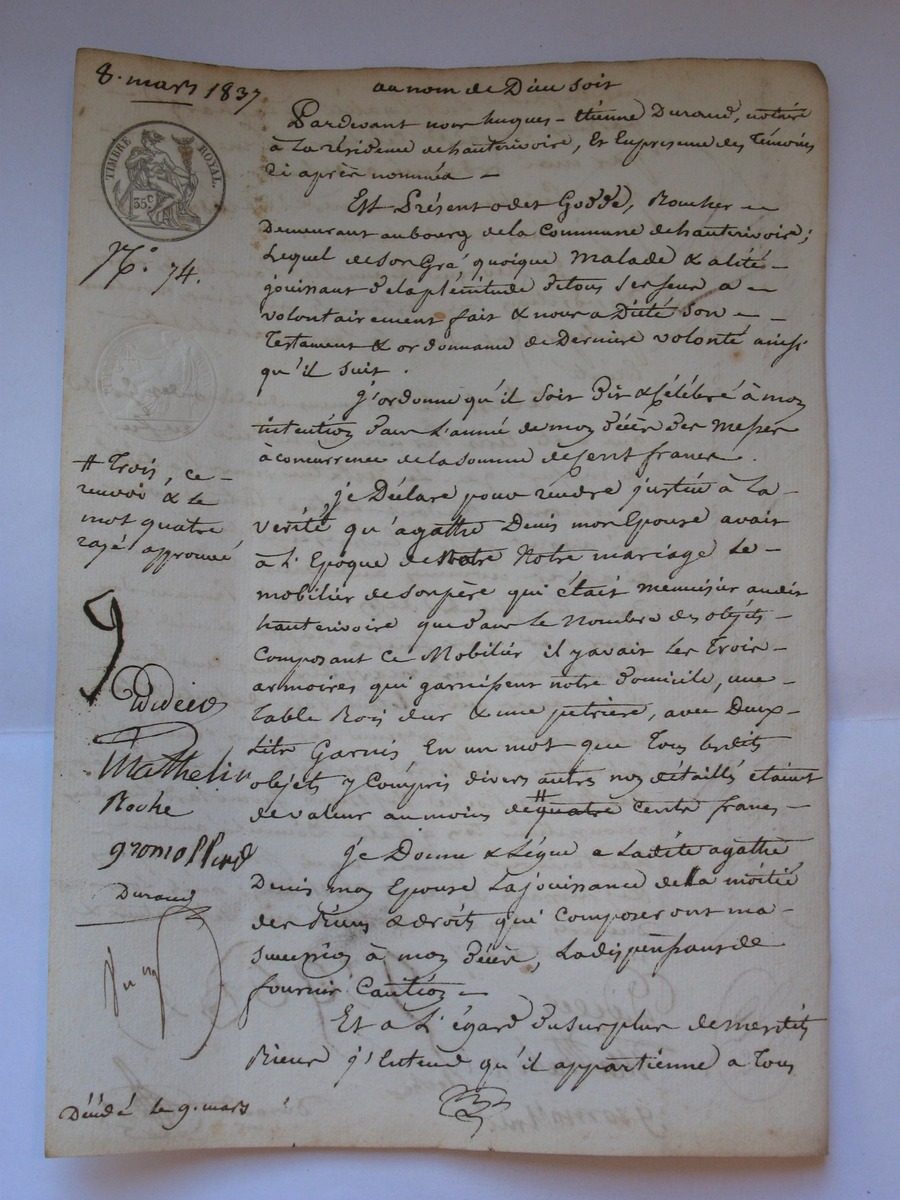 8. mars 1837
au nom de Dieu soit
Pardevant nous hugues-étienne Durand, notaire
à la résidence de hauterivoire, Et En presence des Témoins
ci après nommés —
Est Présent odet Goddé, Boucher —
Demeurant au bourg de la Commune de hauterivoire;
Lequel de son Gré, quoique malade & alité —
jouissant de la plénitude de tous ses sens a —
volontairement fait & nous a Dicté son —
Testament & ordonnance de Dernière volonté ainsi
qu'il suit.
j'ordonne qu'il soit dit & Célébré à mon
intention dans L'année de mon décès des messes
à concurrence de la somme de Cent francs.
je Déclare pour rendre justice à la —
vérité qu'agathe Denis mon Epouse avait
à L'Epoque de Notre mariage le —
mobilier de son père qui était menuisier audit
hauterivoire que dans le Nombre des objets —
Composant Ce Mobilier il y avait les Trois —
armoires qui garnissent notre domicile, une —
table Bois dur & une petrière, avec Deux —
Lits Garnis En un mot que Tous lesdits
objets y Compris divers autres non détaillés étaient
de valeur au moins de # quatre cents francs —
je Donne & Lègue a Ladite agathe
Denis mon Epouse La jouissance de la moitié
des biens & droits qui Composeront ma —
succession à mon décès, La dispensant de
fournir Caution —
Et à L'égard du surplus de mesdits
Biens j'Entend qu'il appartienne a Tous
TIMBRE ROYAL
35 c
N.° 74.
# Trois, ce —
renvoi & le
mot quatre
rayé approuvé
Mathelin
Roche
gromollard
Durand
Décédé le 9. mars